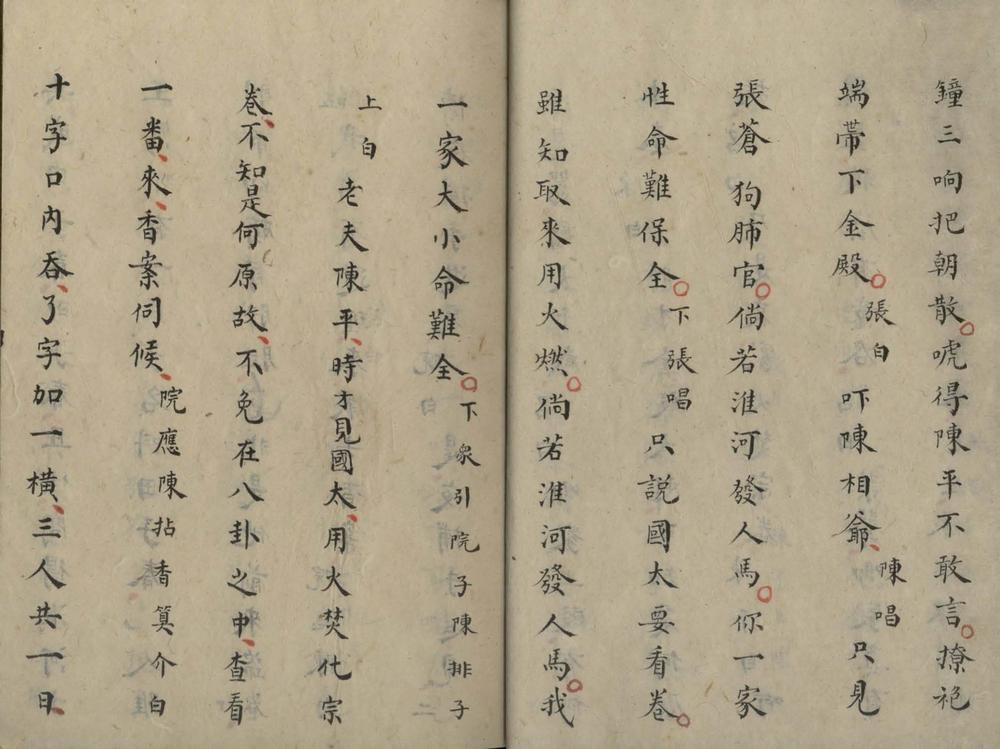 鐘三响把朝散。唬得陳平不敢言。撩袍
端帶下金殿。張白吓陳相爺、陳唱只見
張蒼狗肺官。倘若淮河發人馬。你一家
性命難保全。下張唱只說國太要看卷。
雖知取來用火燃。倘若淮河發人馬。我
一家大小命難全。下衆引院子陳排子
上白老夫陳平、時才見國太、用火焚化宗
卷、不知是何原故、不免在八卦之中、查看
一番、來、香案伺候、院應陳拈香算介白
十字口内吞、了字加一橫、三人共一日、